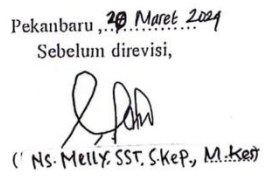 Pekanbaru, 20 Maret 2024
Sebelum direvisi,
(Ns. Melly, SST, S.Kep, M.Kes)